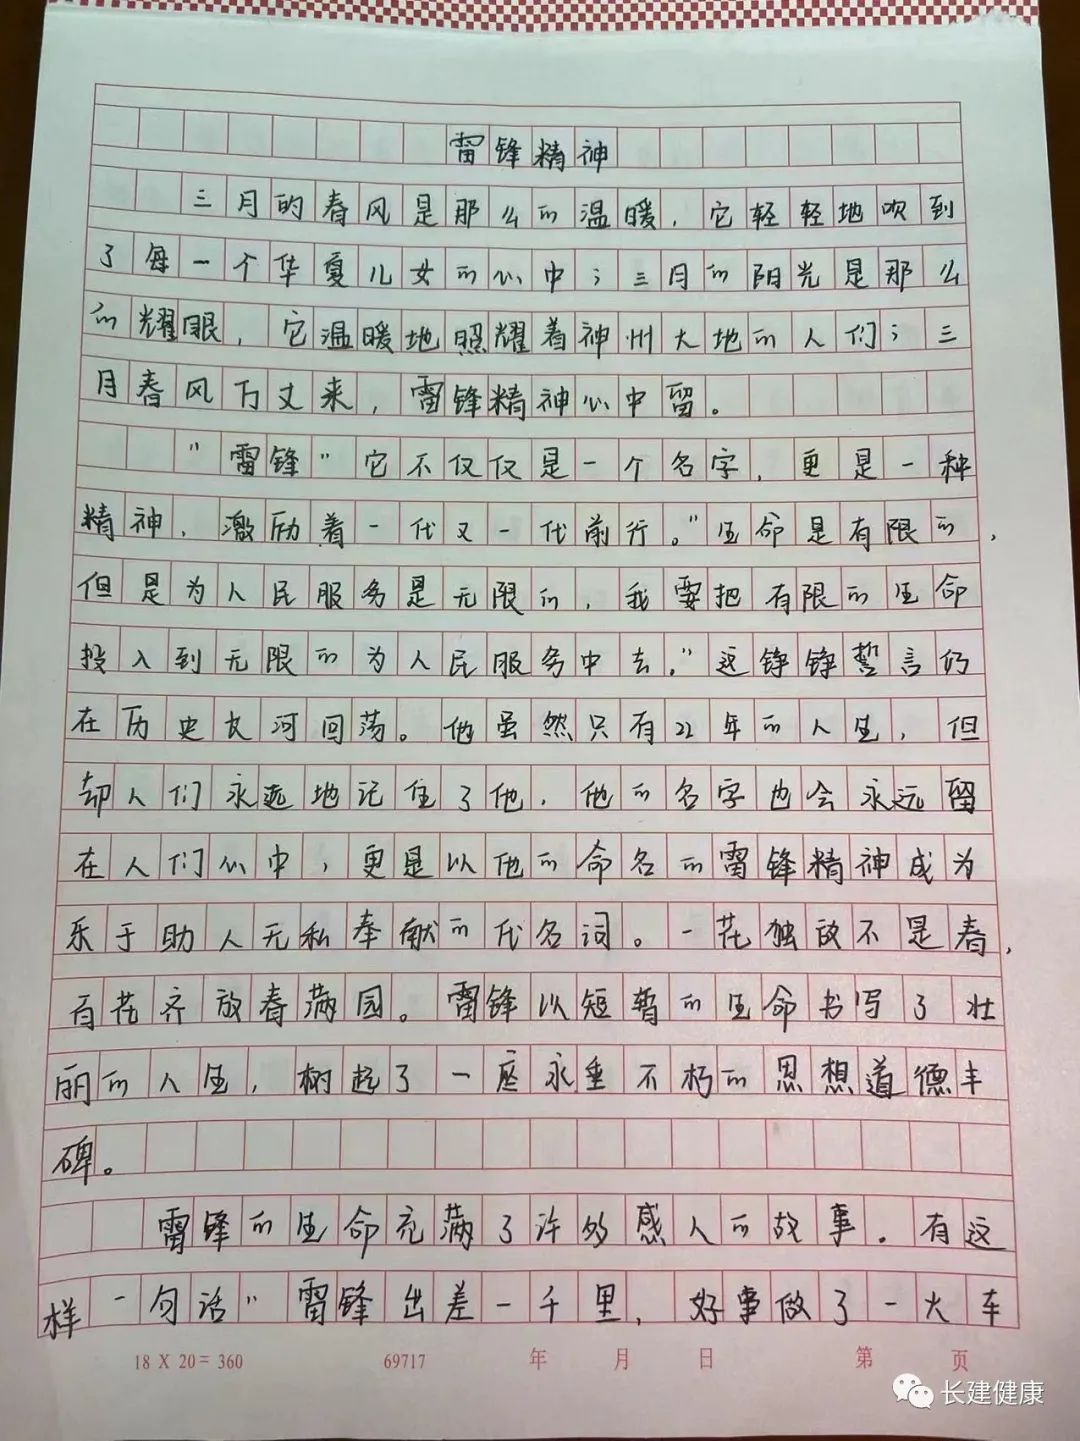 雷锋精神
三月的春风是那么的温暖，它轻轻地吹到
了每一个华夏儿女的心中；三月的阳光是那么
的耀眼，它温暖地照耀着神州大地的人们；三
月春风万丈来，雷锋精神心中留。
"雷锋"它不仅仅是一个名字，更是一种
精神，激励着一代又一代前行。"生命是有限的，
但是为人民服务是无限的，我要把有限的生命
投入到无限的为人民服务中去。"这铮铮誓言仍
在历史长河回荡。他虽然只有22年的人生，但
却人们永远地记住了他，他的名字也会永远留
在人们心中，更是以他的命名的雷锋精神成为
乐于助人无私奉献的代名词。一花独放不是春，
百花齐放春满园。雷锋以短暂的生命书写了壮
丽的人生，树起了一座永垂不朽的思想道德丰
碑。
雷锋的生命充满了许多感人的故事。有这
样一句话"雷锋出差一千里，好事做了一火车
18 X 20 = 360 69717 年 月 日 第 页
长建健康